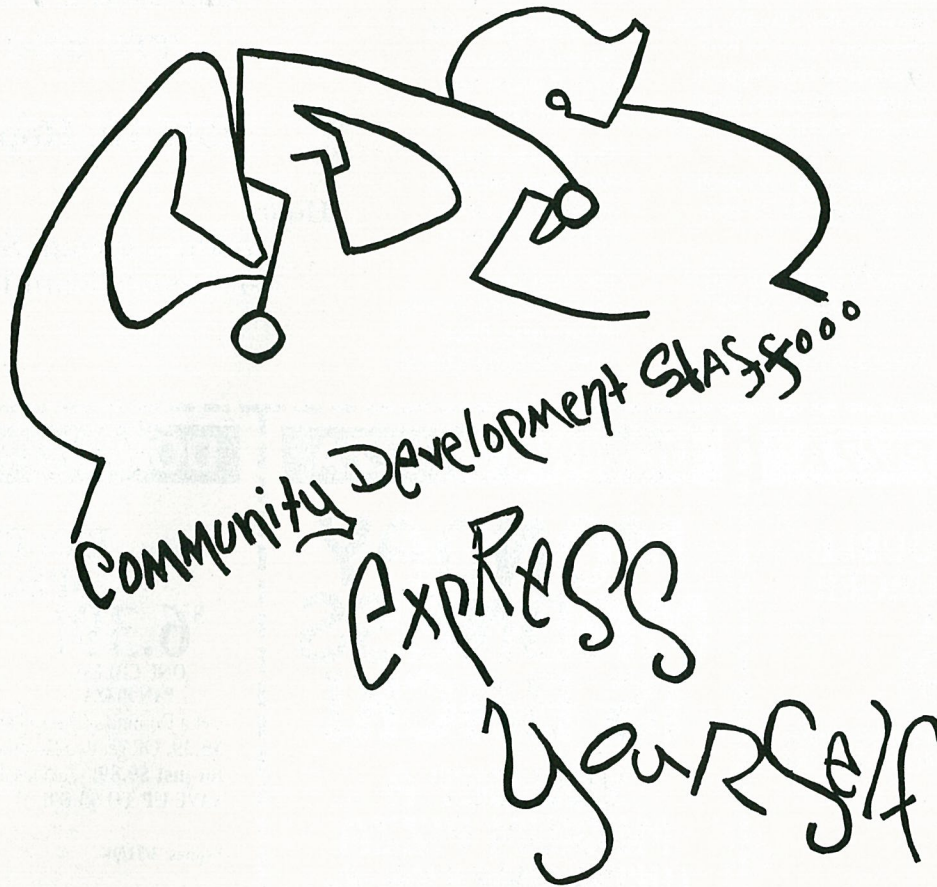 Community Development Staff...
Express
Yourself